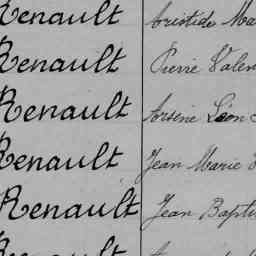 Renault Aristide Ma
Renault Pierre Valen
Renault Arsène Léon
Renault Jean Marie
Renault Jean Bapti